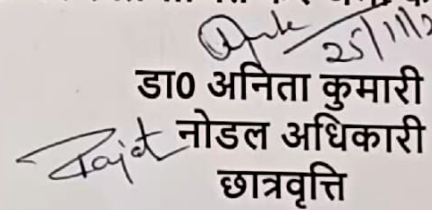 25/11/2
डा0 अनिता कुमारी
नोडल अधिकारी
छात्रवृत्ति